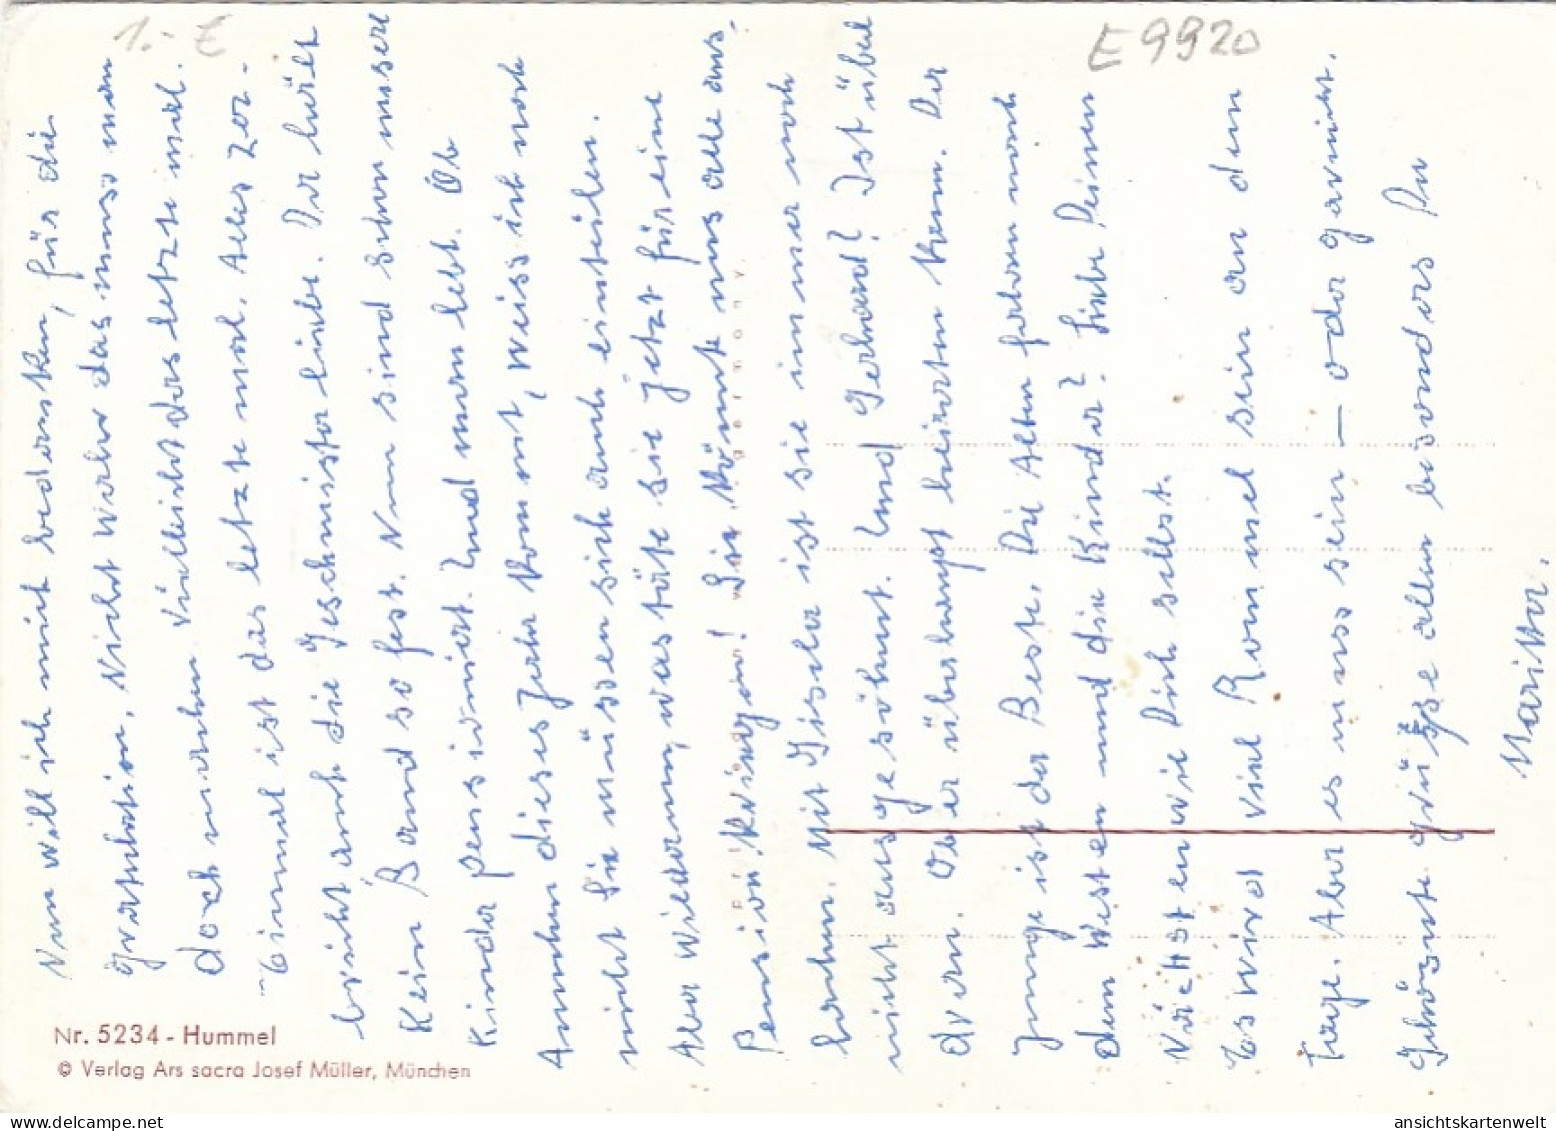 1.- €
E 9920
Nun will ich mich bedanken, für die
Gratulation. Nicht wahr das muss man
doch machen. Vielleicht das letzte mal.
Einmal ist das letzte mal. Alles zer-
bricht auch die Geschwisterliebe. Der hält
kein Band so fest. Nun sind schon unsere
Kinder pensioniert. Und man lebt. Ob
Annchen dieses Jahr kommt, weiss ich noch
nicht. Sie müssen sich auch einteilen.
Aber wiedermann, was täte sie jetzt für eine
Pension kriegen! Sie könnte uns alle aus-
 Mit Gisela ist sie immer noch
nicht ausgesöhnt. Und Gerhard? Ist übel
dran. Ob er überhaupt heiraten kann. Der
Junge ist der Beste. Die Alten fahren nach
dem Westen und die Kinder? Liebe Deinen
Nächsten wie Dich selbst.
Es wird viel Rommel sein an dem
Tage. Aber es muss sein — oder garnicht.
 Grüsse allen besonders Du
Nr. 5234 - Hummel
© Verlag Ars sacra Josef Müller, München
ansichtskartenwelt